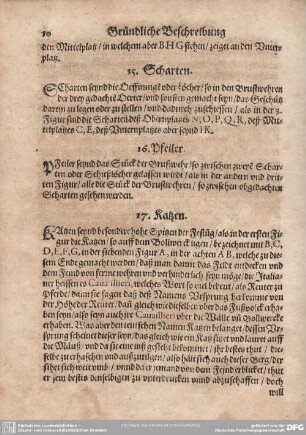 10 Gründliche Beschreibung
den Mittelplatz / in welchem aber B H G stehen / zeiget an den Vnter-
platz.
15. Scharten.
SCharten seynd die Oeffnungen oder löcher / so in den Brustwehren
der drey gedachte Oerter / vnd sonsten gemacht seyn / das Geschütz
darein zu legen oder zu stellen / vnd dadurch zuschiessen / als in der 3.
Figur sind die Scharten deß Oberplatzes N, O, P, Q, R, deß Mit-
telplatzes C, E, deß Vnterplatzes aber seynd I K.
16. Pfeiler.
PFeiler seynd das Stück der Brustwehr / so zwischen zween Schar-
ten oder Schießlöcher gelassen wird / als in der andern vnd dritten
Figur / alle die Stück der Brustwehren / so zwischen obgedachten
Scharten gesehen werden.
17. Katzen.
KAtzen seynd besonder hohe Spitzen der Festung / als in der ersten Fi-
gur die Katzen / so auff dem Bollwerck ligen / bezeichnet mit B, C,
D, E, F, G, in der siebenden Figur A, in der achten A B, welche zu die-
sem Ende gemacht werden / daß man damit das Feld entdecken vnd
dem Feind von ferrne wehren vnd verhinderlich seyn möge / die Italiä-
ner heissens Cavaillieri, welches Wort so viel bedeut / als Reuter zu
Pferde / dann sie sagen daß deß Namens Vrsprung herkomme von
der Höhe der Reuter / daß gleich wie dieselbe vber das Fußvolck erha-
ben seyn / also seyn auch die Cavaillieri vber die Wälle vñ Bollwerck
erhaben. Was aber den teutschen Namen Katzen belanget / dessen Vr-
sprung scheinet dieser seyn / das gleich wie ein Katz sitzet vnd lauret auff
die Mäuß / vnd da sie eine ins gesicht bekommet / ihr bestes thut / die-
selbe zu erhaschen vnd auffzutilgen / also hält sich auch dieser Berg / der
sihet sich weit vmb / vnnd da er jemand von dem Feind erblicket / thut
er sein bestes denselbigen zu vnterdrucken vnnd abzuschaffen / doch
will